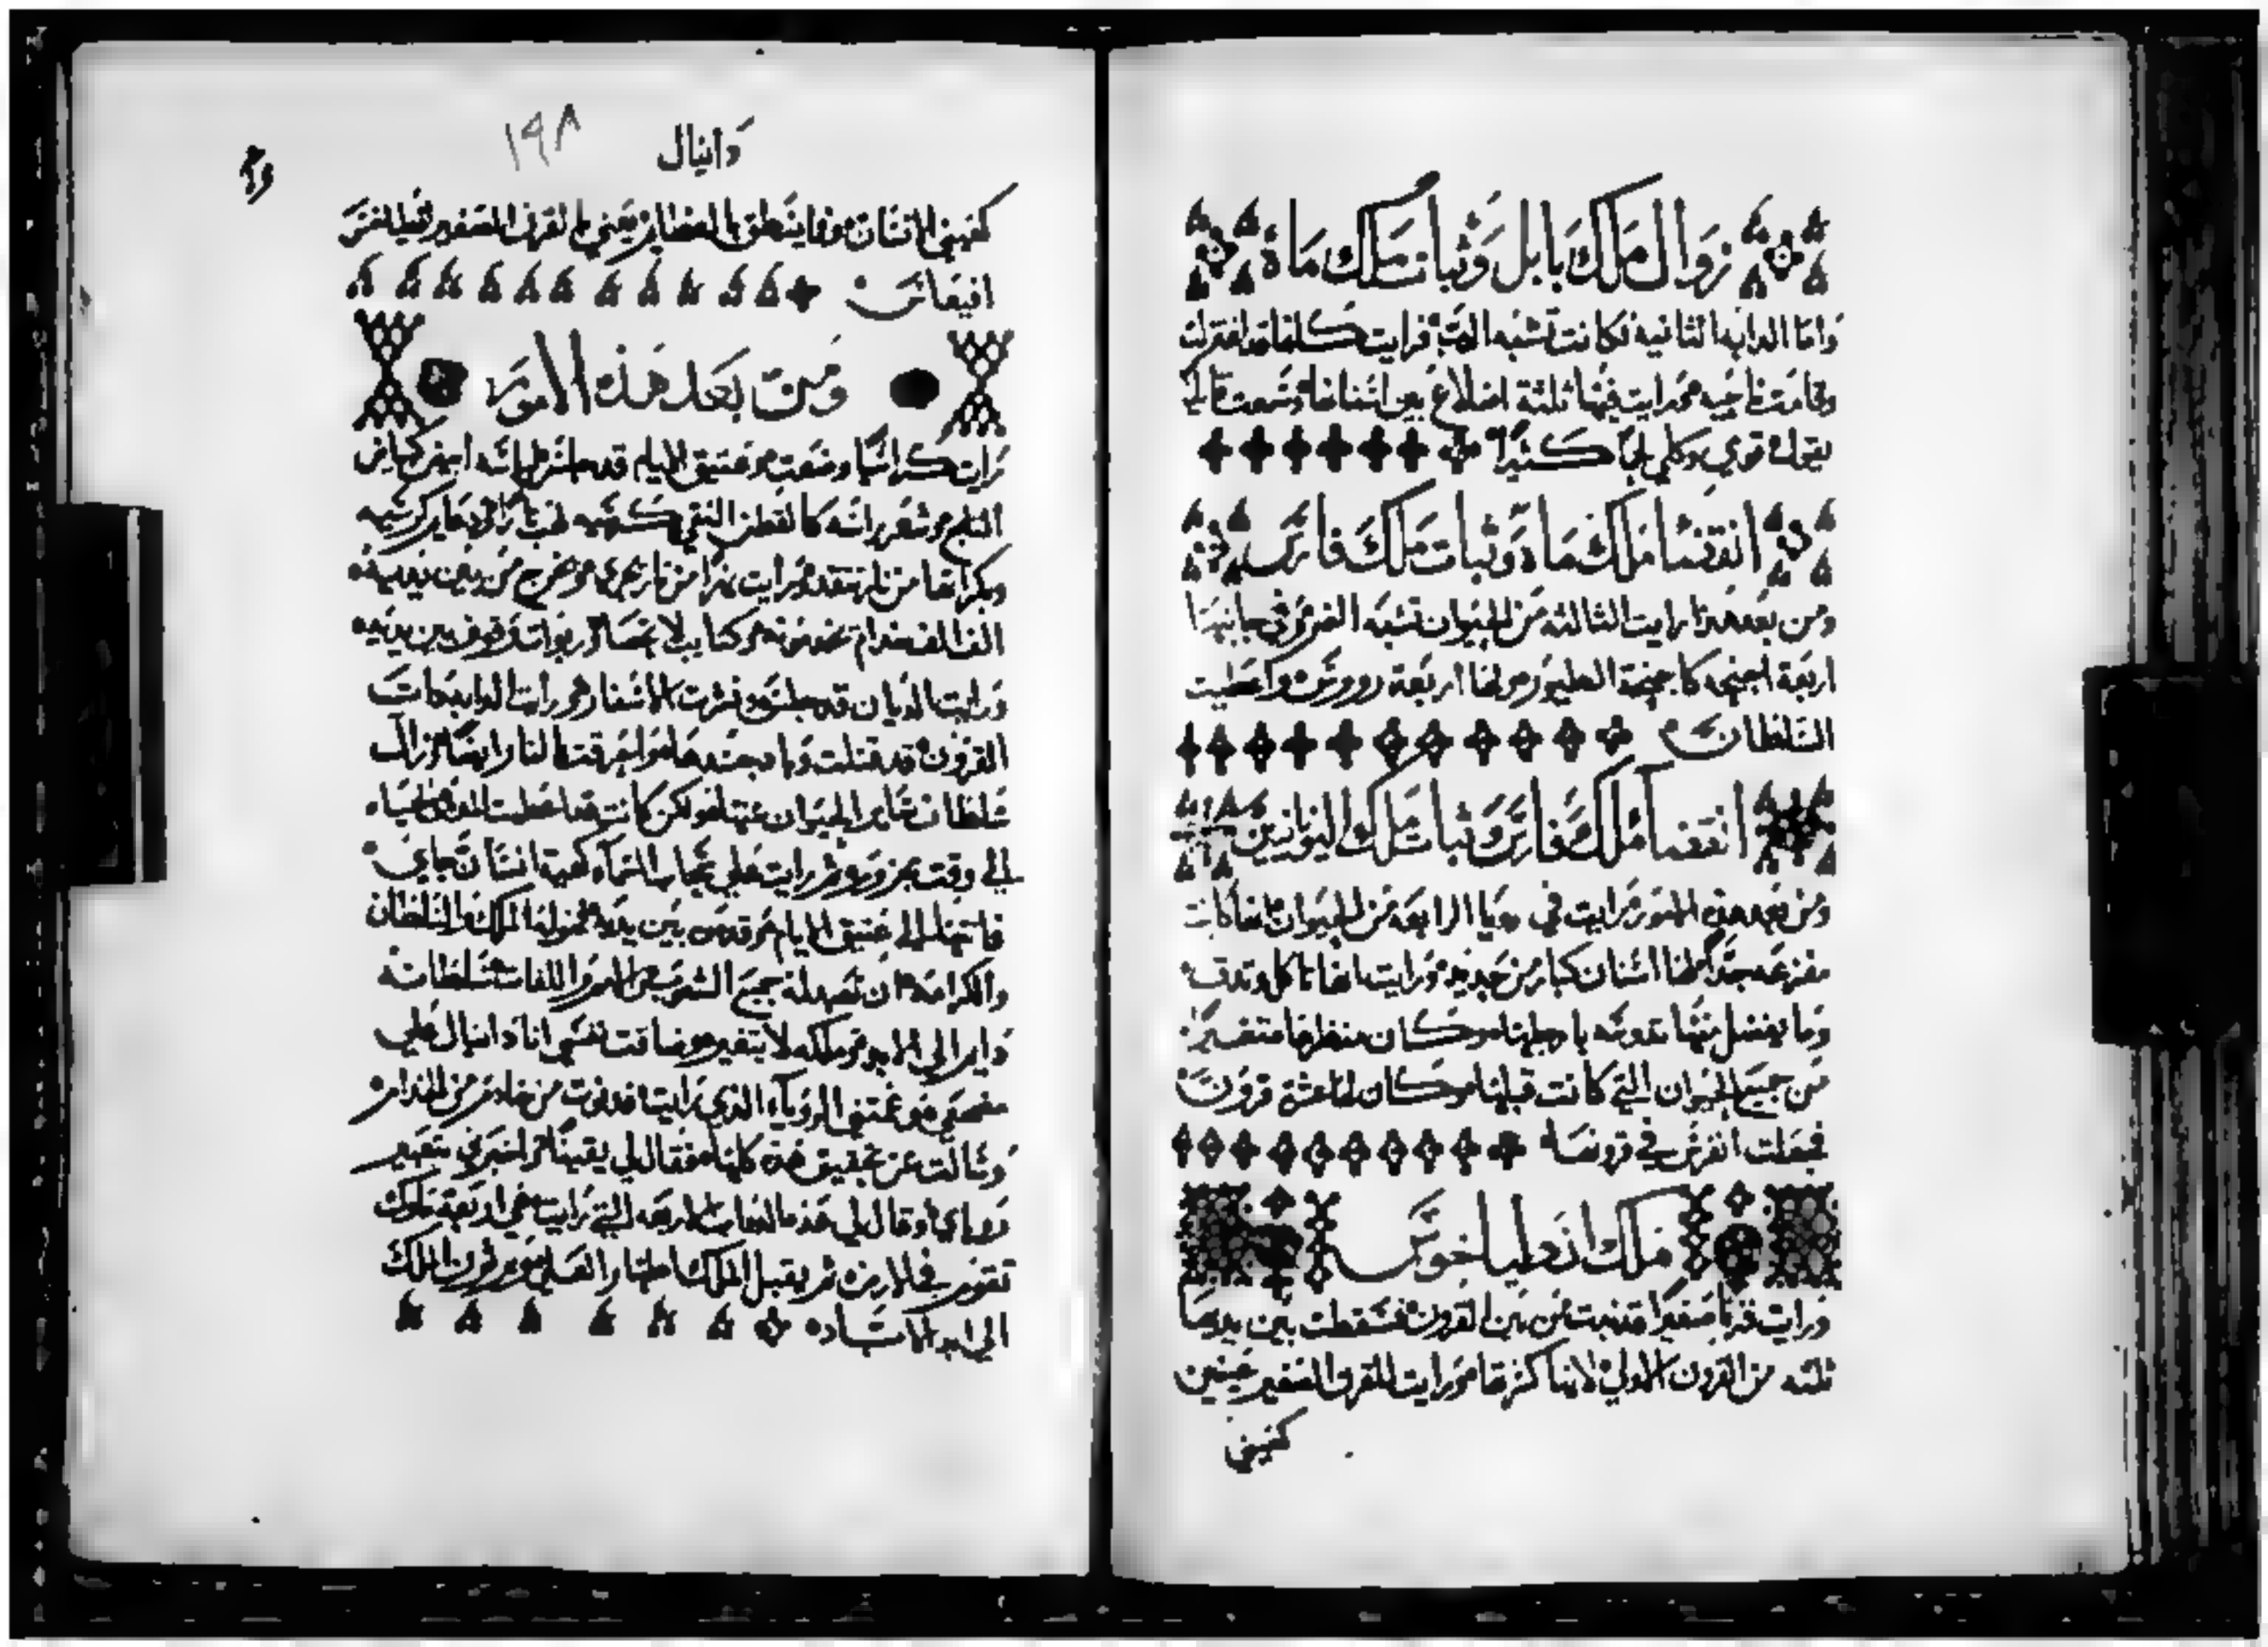 زوال ملك بابل وثبات ملك ماة
واما الدابه الثانيه فكانت تشبه الدب فرايت كلها قد افترلت
وقامت ناحيه ورايت فيها ثلثة اضلاع بين اسنانها وسمعت
يقول قومي وكلي لحماً كثيراً
انقضا ملك ماد وثبات ملك فارس
ومن بعد هذا رايت الثالثه من الحيوان تشبه النمر في جانبها
اربعة اجنحه كاجنحة الطير ولها اربعة رووس واعطيت
السلطان
انقضا ملك فارس وثبات ملك اليونانيين
ومن بعد هذه الامور رايت في رويا الرابعه من الحيوان انها كانت
مفزعه جداً لها اسنان كبار من حديد ورايت انها تاكل وتدق
وما يفضل منها تدوسه بارجلها وكان منظرها متغير
من جميع الحيوان التي كانت قبلها وكان لها عشرة قرون
فجعلت انفرس في قرونها
ملك انطياخوس
ورايت قرنا صغيرا قد نبت من بين القرون فسقطت بين يديها
ثلثه من القرون الاولي لانها كثرتها ورايت للقرن الصغير عينين
كعيني
دانيال
١٩٨
كعيني الانسان وفما ينطق بالعظايم يعني بالقرن الصغير
ومن بعد هذه الامور
رايت كراسيا وضعت وعتيق الايام قد جلس لباسه ابيض كبياض
الثلج وشعر راسه كالقطن النقي كرسيه لهب نار
وبكراتها من نار تتقد ورايت نهرا من نار يجري ويخرج من بين يديه
الف الف خدام يخدمونه وكتايب لا تحصا وربوات وقوف بين يديه
ورايت الديان قد جلس ونشرت الاسفار ورايت الدابه ذات
القرون قد قتلت وباد جسدها واحرقت بالنار ايضا وزال
سلطان ساير الحيوان عنها ولكن كانت قد اعطيت المده في الحياه
الي وقت محزور ورايت علي سحاب السماء كهية انسان جاي
فانتها الي عتيق الايام وقدمو بين يديه فخوله الملك والسلطان
والكرامه ان تعبد له جميع الشعوب والامم واللغات سلطانه
دايم الي الابد وملكه لا يتغير وضاقت نفسي انا دانيال علي
مضجعي وغمتني الروياء الذي رايت فدنوت من خادم من الخدام
وسالت عن تحقيق هذه كلها فقال لي يقينا واخبرني بتعبير
روياي وقال لي هذه الدابات الاربعه التي رايت هي اربعة ملوك
تقوم في الارض ثم يقبل الملك اطهار العلي ويرثون الملك
الي ابد الاباد